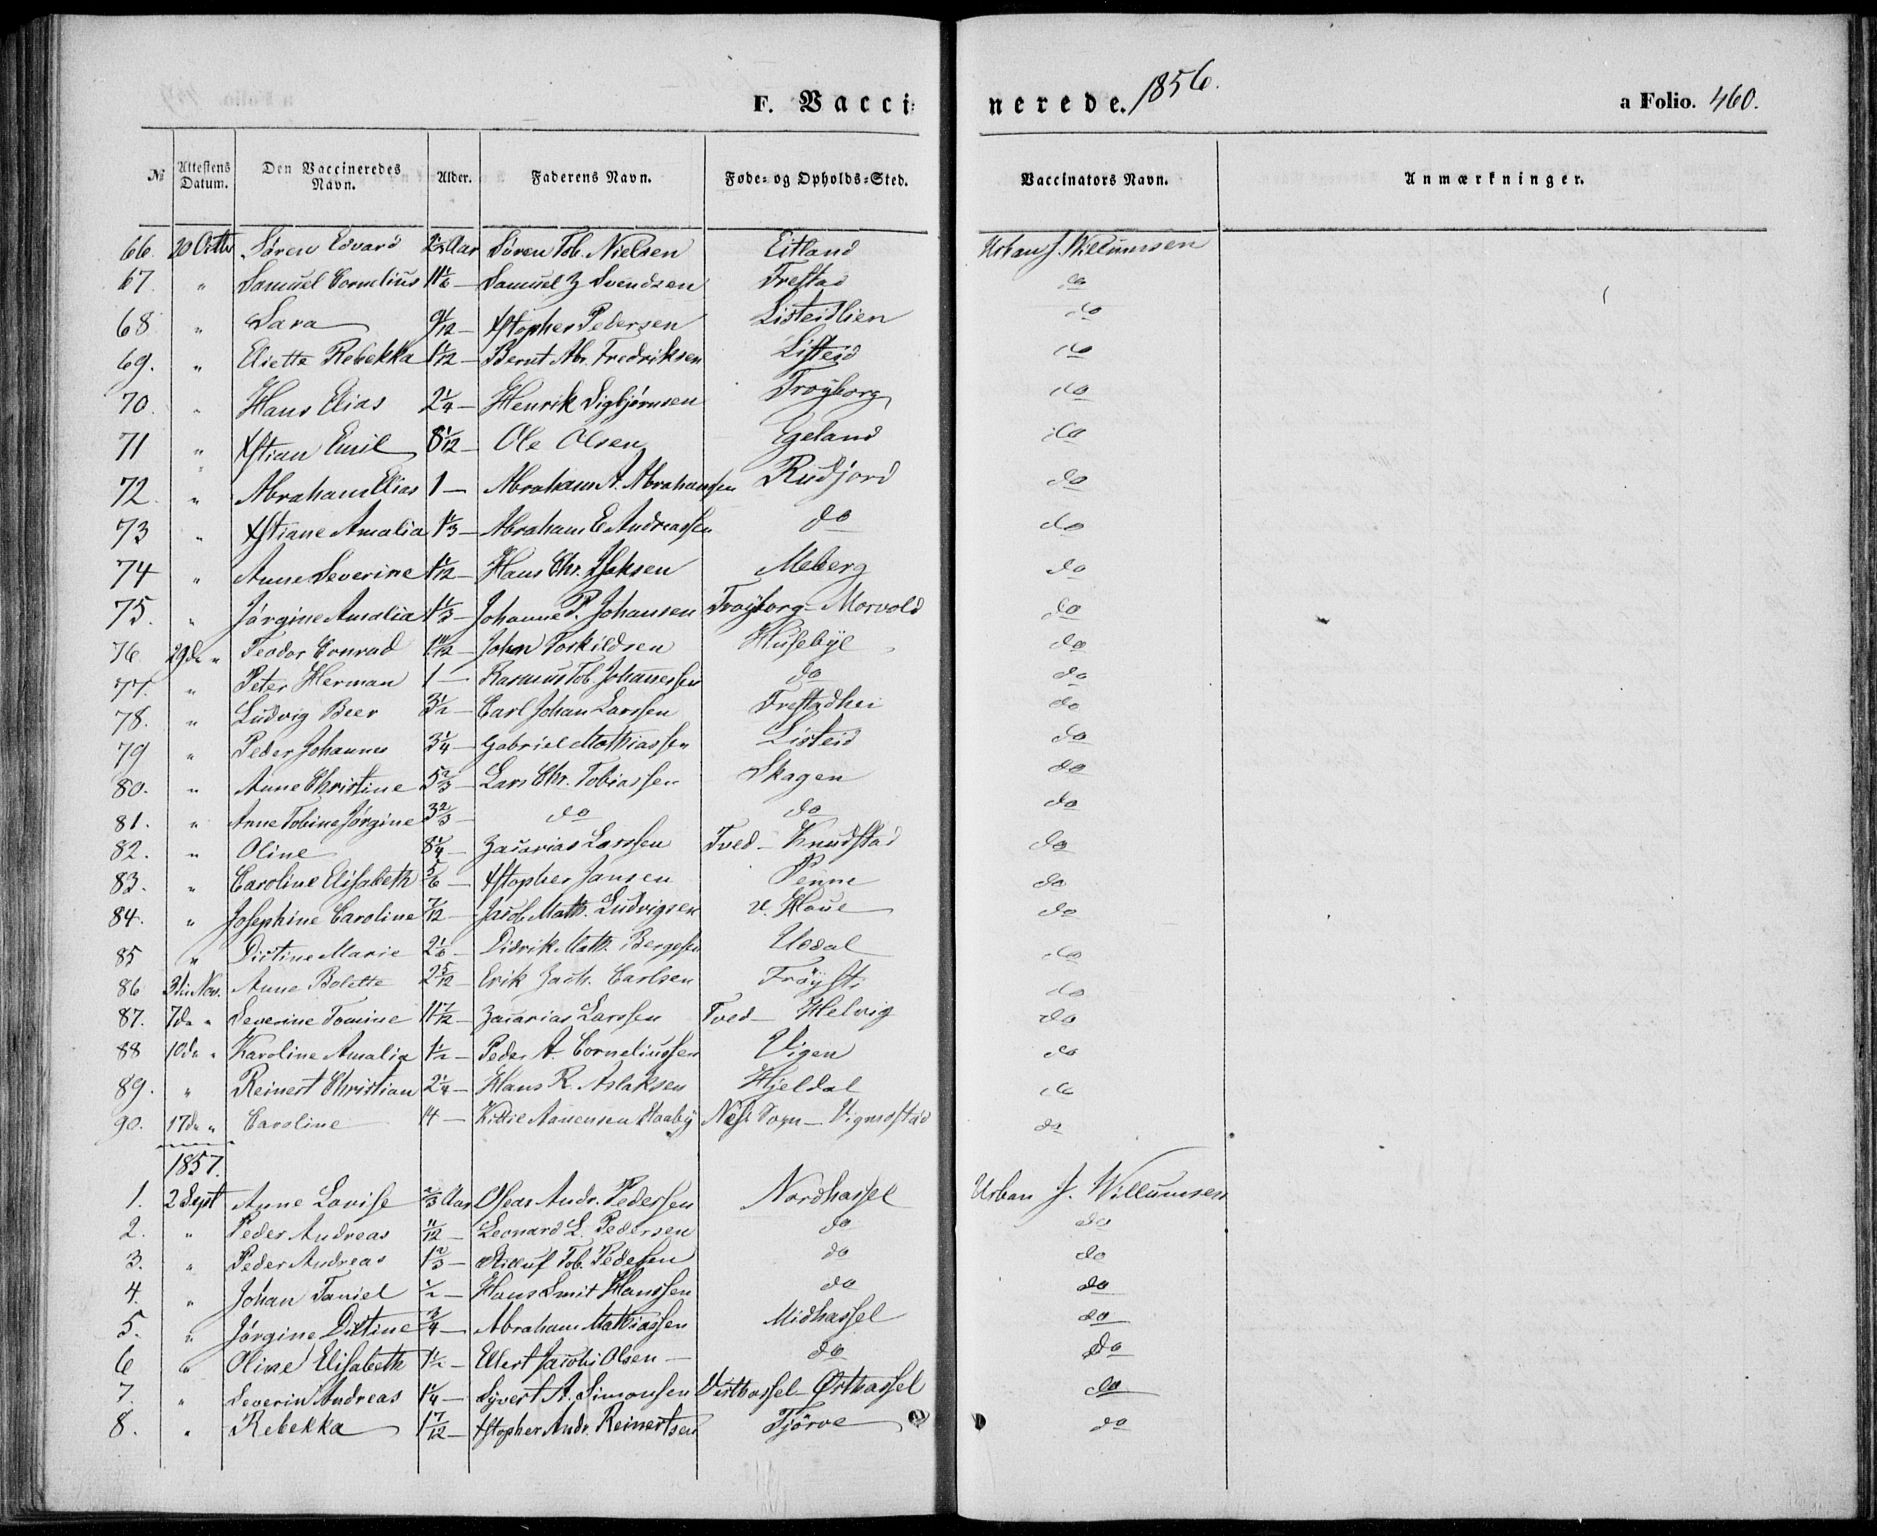 F. Vaccinerede. 1856. a Folio. 460.
№ Attestens Datum. Den Vaccineredes Navn. Alder. Faderens Navn. Føde- og Opholds-Sted. Vaccinators Navn. Anmærkninger.
66. 20 Octbr Søren Edvard 2½ Aar Søren Tob. Nielsen Eitland Urban J. Willumsen
67. " Samuel Cornelius 11 1/6 — Samuel Z Svendsen Frestad do
68 " Sara 9/12 — Xstopher Pedersen Listeidlien do
69. " Eliette Rebekka 1 1/12 — Bernt Abr. Fredriksen Listeid do
70. " Hans Elias 2¼ — Henrik Sigbjørnsen Frøyborg do
71 " Xstian Emil 8 1/12 — Ole Olsen Egeland do
72. " Abraham Elias 1 — Abraham A. Abrahamsen Rudjord do
73 " Xstiane Amalia 1⅓ — Abraham E. Andreassen do do
74 " Anne Severine 1 1/12 — Hans Chr. Isaksen Meberg do
75. " Jørgine Amalia 1⅓ — Johannes P. Johansen Frøyborg - Morvold do
76 29 da " Teodor Conrad 1 11/12 — John Toskildsen Husebye do
77. " Peter Herman 1 — Rasmus Tob. Johannessen do do
78. " Ludvig Beer 3½ — Carl Johan Larssen Frestadhei do
79 " Peder Johannes 3¼ — Gabriel Mathiassen Listeid do
80. " Anne Christine 5⅔ — Lars Chr. Tobiassen Skagen do
81. " Anne Tobine Jørgine 3⅔ — do do
82. " Oline 8¼ — Zacarias Larssen Tved - Knudstad do
83. " Caroline Elisabeth 5/6 — Xstopher Jansen Penne do
84. " Josephine Caroline 7/12 — Jacob Math. Ludvigsen v. Houe do
85 " Dictine Marie 2 1/6 — Didrik Math. Bergesen Uddal do
86 3die Nov. Anne Bolette 2 5/12 Erik Zach. Carlsen Frøysti do
87. 7 da " Severine Tomine 11 7/12 — Zacarias Larssen Tved - Helvig do
88 10 da " Karoline Amalia 1½ — Peder A. Corneliussen Vigen do
89. " Reinert Christian 2¼ — Hans R. Aslaksen Hjeldal do
90. 17 da " Caroline 14 — Kittil Aanensen Haaby Nes Sogn - Vigmostad do
1857.
1. 2 Sept Anne Lovise ⅔ Aar Oseas Andr. Pedersen Nordhassel Urban J. Willumsen
2. " Peder Andreas 11/12 — Leonard L. Pedersen do do
3. " Peder Andreas 1⅔ — Tob. Pedersen do do
4. " Johan Daniel ½ — Hans Smit Hanssen do do
5. " Jørgine Dictine ¾ — Abraham Mathiassen Midhassel do
6 " Oline Elisabeth 1½ — Ellert Jacob Olsen — do do
7. " Severin Andreas 1¼ — Syvert A. Simonsen Vesthassel - Østhassel do
8. " Rebekka 1 7/12 — Xstopher Andr. Reinertsen Tjørve do